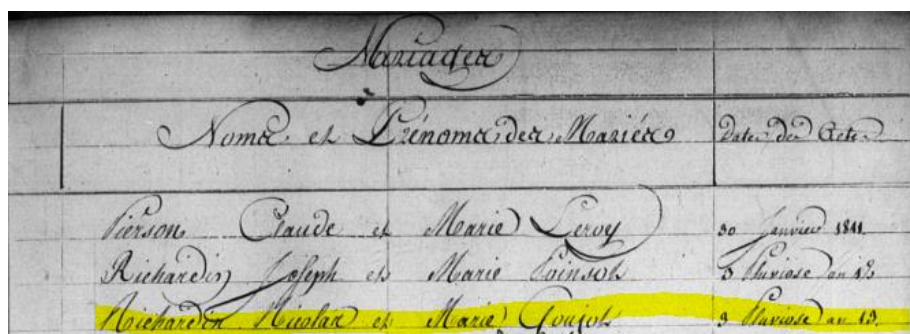 Mariages
Noms et Prénoms des Mariés Dates des Actes
Pierson Claude et Marie Leroy 30 Janvier 1811
Richardin Joseph et Marie Poinsot 3 Pluviose an 13
Richardin Nicolas et Marie Goujot 3 Pluviose an 13